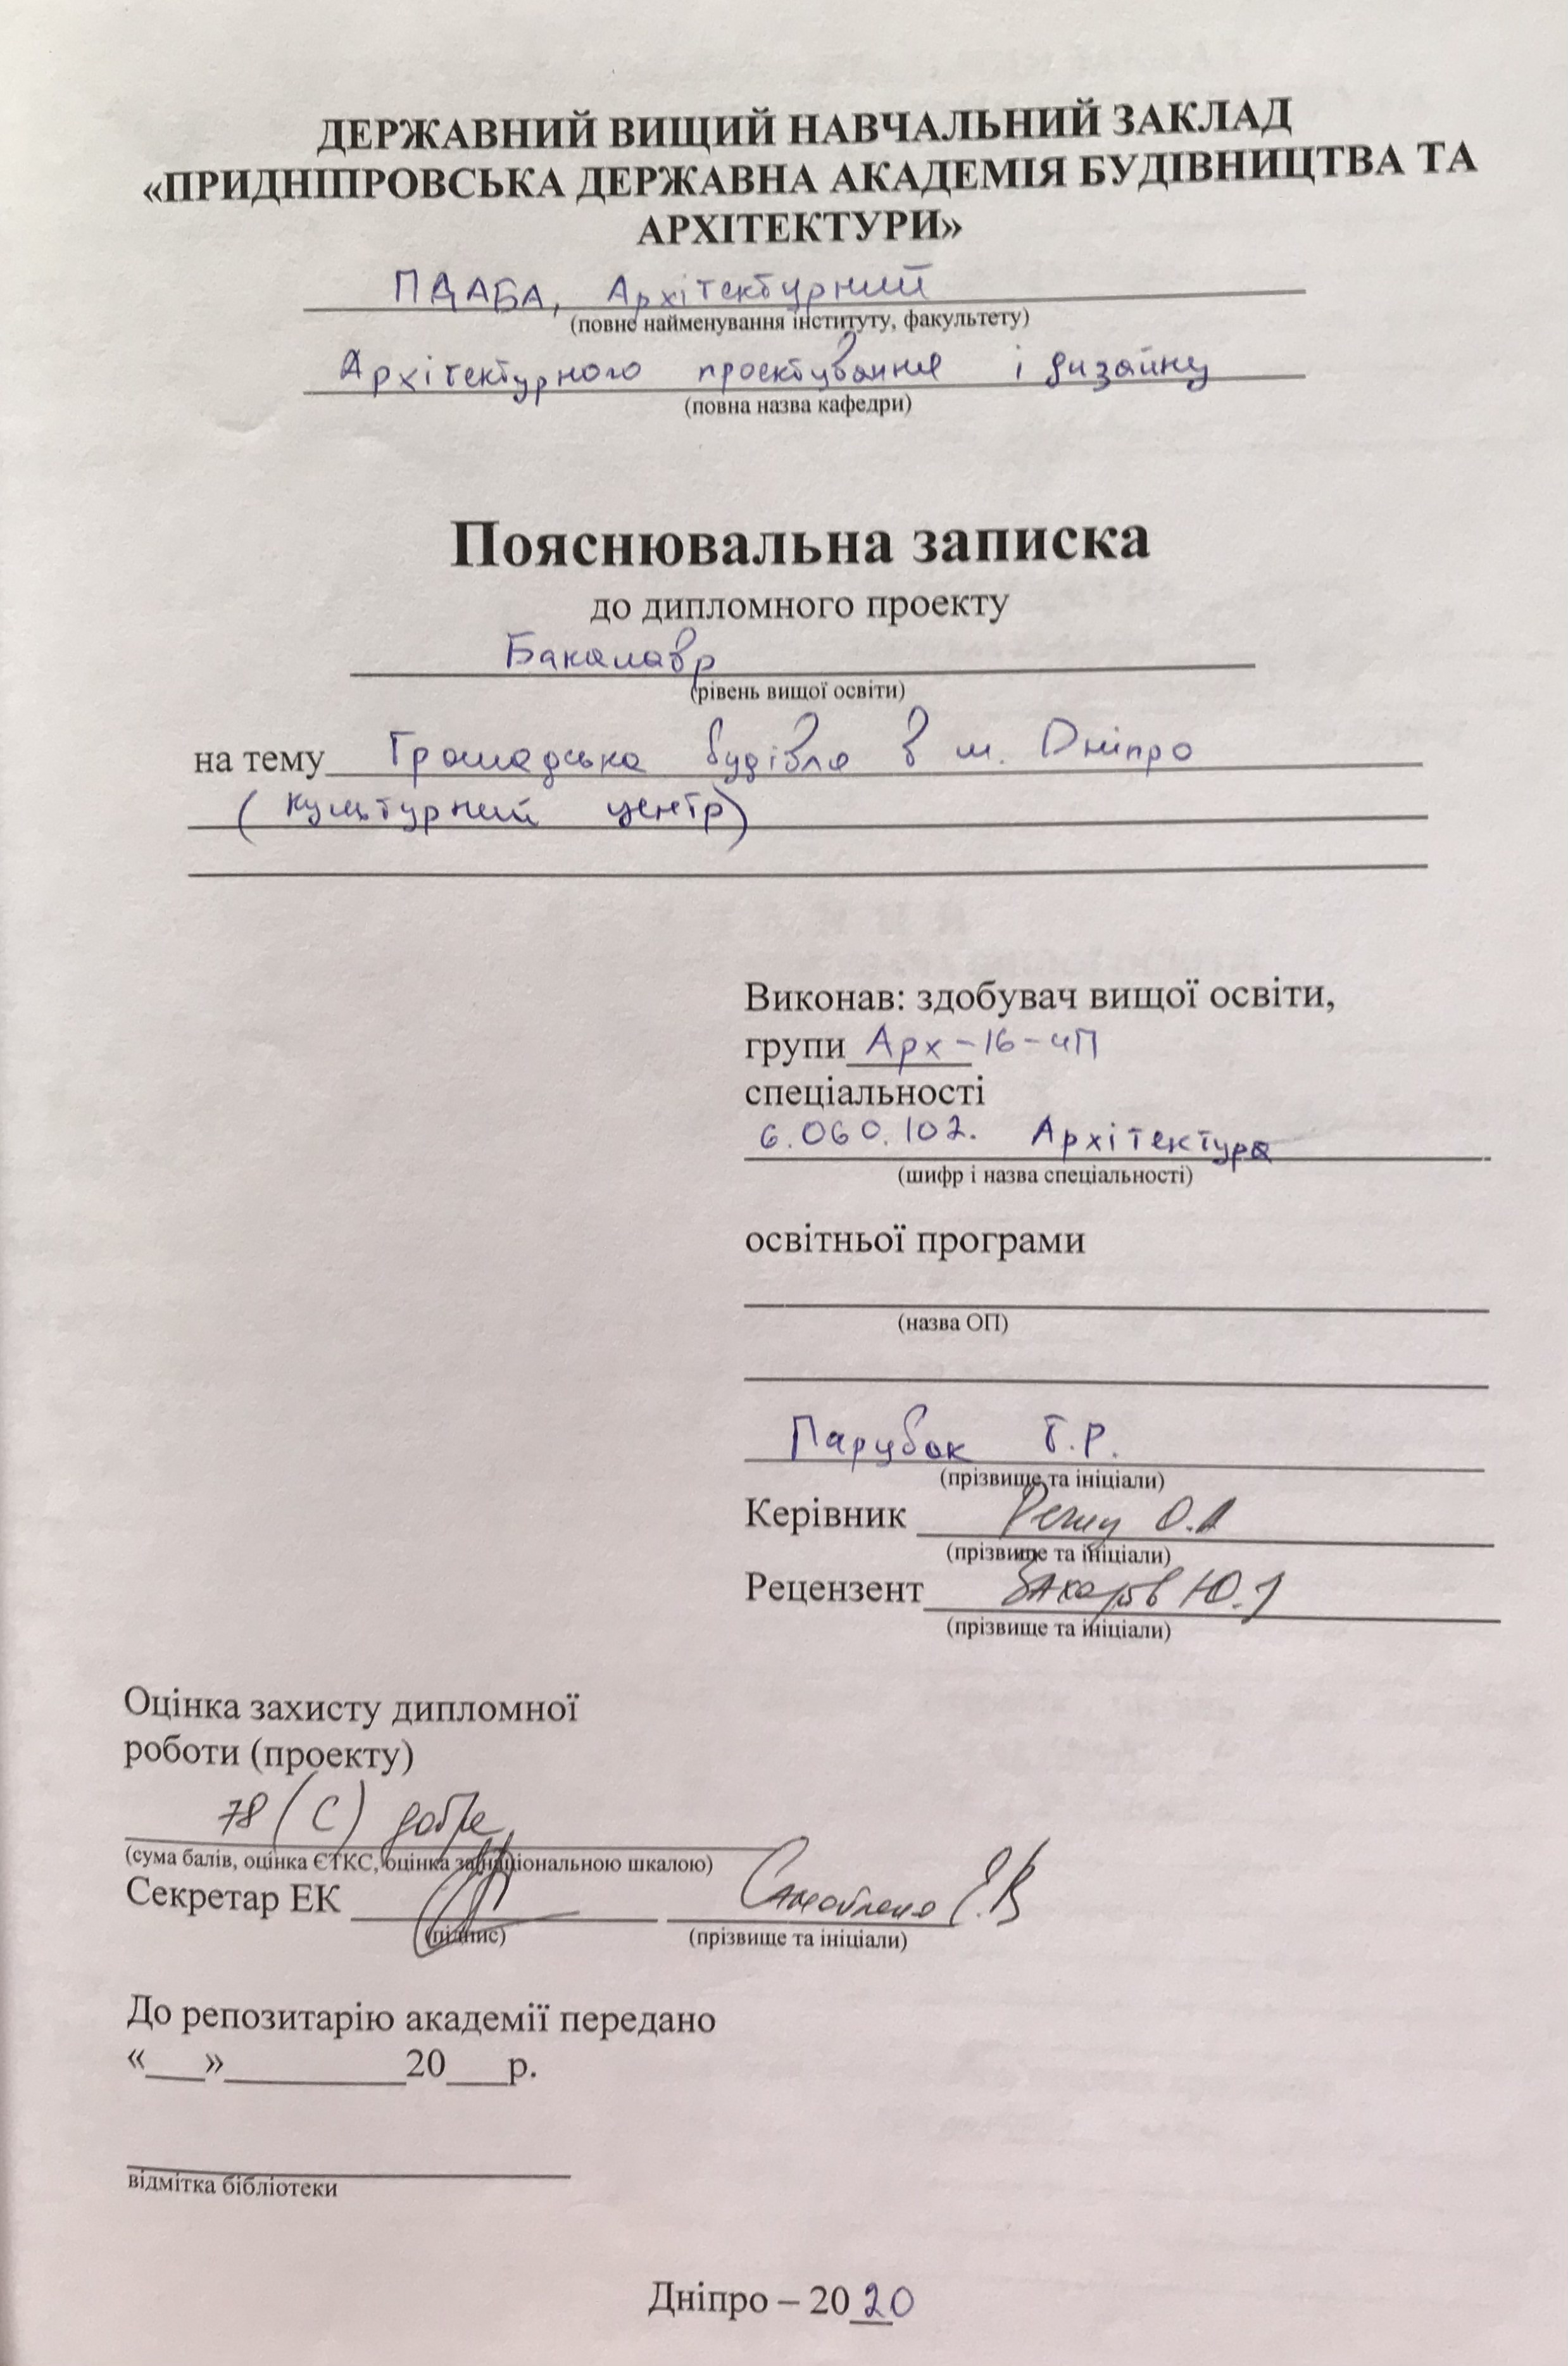 ДЕРЖАВНИЙ ВИЩИЙ НАВЧАЛЬНИЙ ЗАКЛАД
«ПРИДНІПРОВСЬКА ДЕРЖАВНА АКАДЕМІЯ БУДІВНИЦТВА ТА
АРХІТЕКТУРИ»
ПДАБА, Архітектурний
(повне найменування інституту, факультету)
Архітектурного проектування і дизайну
(повна назва кафедри)
Пояснювальна записка
до дипломного проекту
Бакалавр
(рівень вищої освіти)
на тему Громадська будівля в м. Дніпро
(культурний центр)
Виконав: здобувач вищої освіти,
групи Арх-16-4П
спеціальності
6.060.102. Архітектура
(шифр і назва спеціальності)
освітньої програми
(назва ОП)
Парубок Т.Р.
(прізвище та ініціали)
Керівник О.А
(прізвище та ініціали)
Рецензент Захаров Ю.І
(прізвище та ініціали)
Оцінка захисту дипломної
роботи (проекту)
78 (С) добре
(сума балів, оцінка ЄТКС, оцінка за національною шкалою)
Секретар ЕК Самойленко Є.В
(підпис) (прізвище та ініціали)
До репозитарію академії передано
«___»_________20___р.
відмітка бібліотеки
Дніпро – 2020